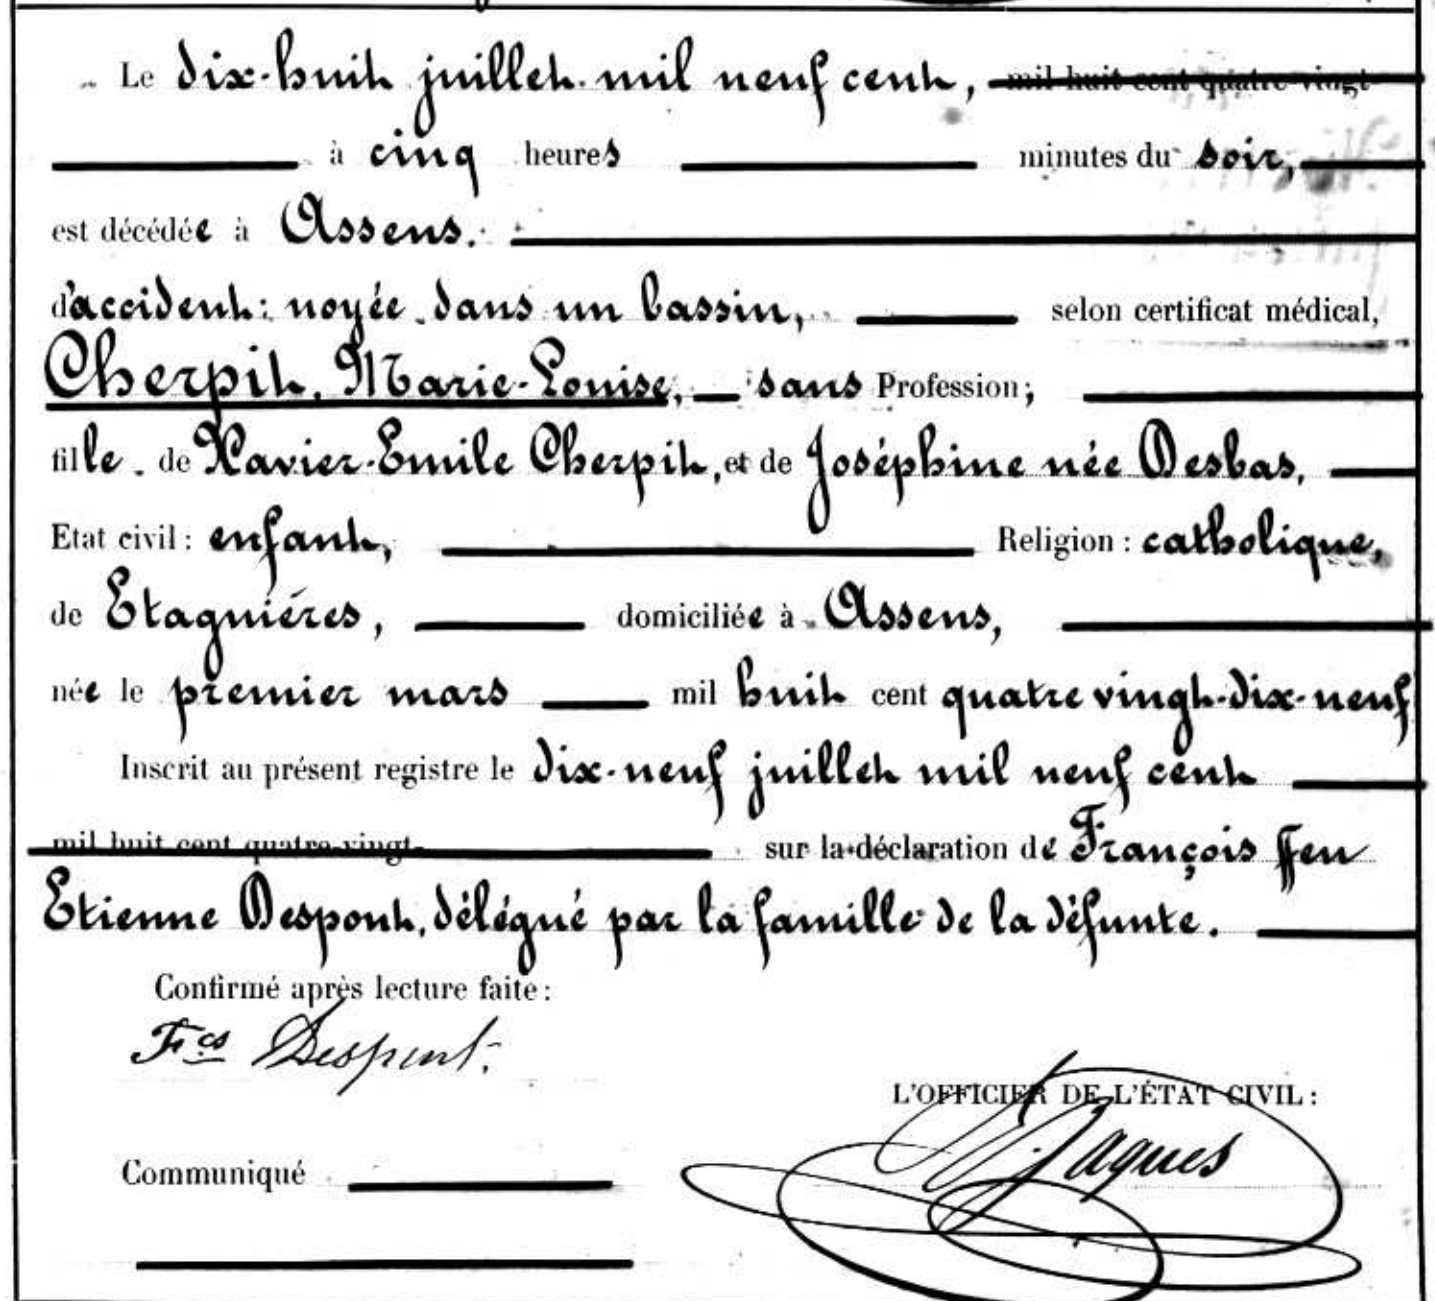 Le dix-huit juillet mil neuf cent, mil huit cent quatre-vingt
à cinq heures minutes du soir,
est décédée à Assens.
d'accident: noyée dans un bassin, selon certificat médical,
Cherpit, Marie-Louise, sans Profession;
fille de Xavier-Emile Cherpit, et de Joséphine née Desbas,
Etat civil: enfant, Religion: catholique,
de Etagnières, domiciliée à Assens,
née le premier mars mil huit cent quatre vingt-dix-neuf
Inscrit au présent registre le dix-neuf juillet mil neuf cent
mil huit cent quatre-vingt- sur la déclaration de François ffeu
Etienne Despont, délégué par la famille de la défunte.
Confirmé après lecture faite:
Fcs Despont.
L'OFFICIER DE L'ÉTAT CIVIL:
Jaques
Communiqué